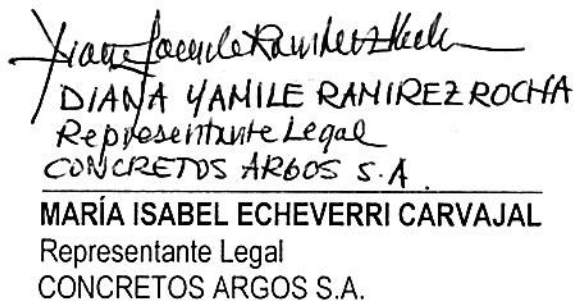 DIANA YAMILE RAMIREZ ROCHA
Representante Legal
CONCRETOS ARGOS S.A.
MARÍA ISABEL ECHEVERRI CARVAJAL
Representante Legal
CONCRETOS ARGOS S.A.